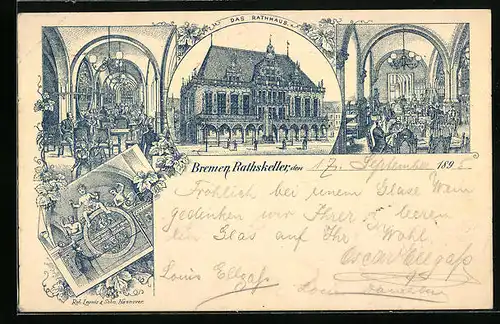 DAS RATHHAUS.
Bremen, Rathskeller, den 17. September 1895
Fröhlich bei einem Glase Wein
gedenken wir Ihrer & leeren
ein Glas auf Ihr Wohl.
Oscar Ellgaß
Louis Ellgaß
Rob. Leunis & Sohn, Hannover.